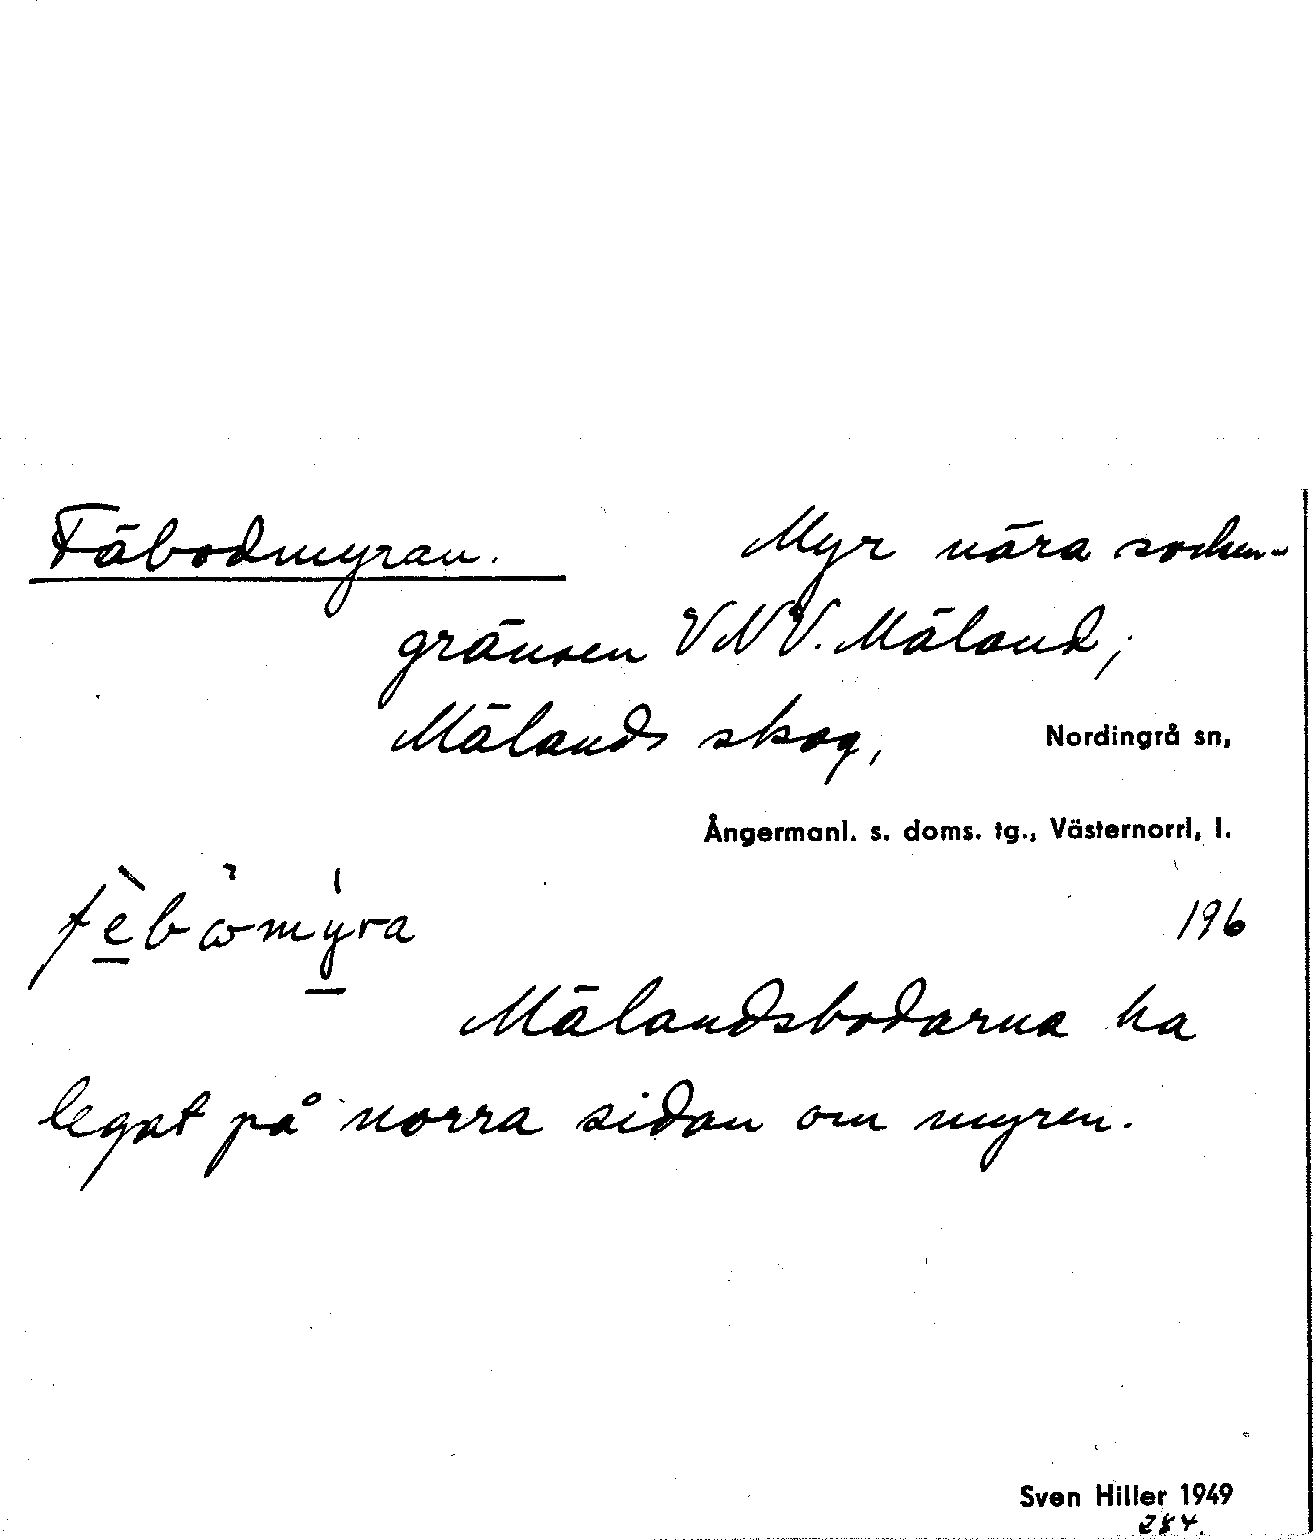 Fäbodmyran. Myr nära socken-
gränsen VNV. Mäland;
Mälands skog, Nordingrå sn,
Ångermanl. s. doms. tg., Västernorrl. l.
fèbωmýra 196
Mälandsbodarna ha
legat på norra sidan om myren.
Sven Hiller 1949
284.